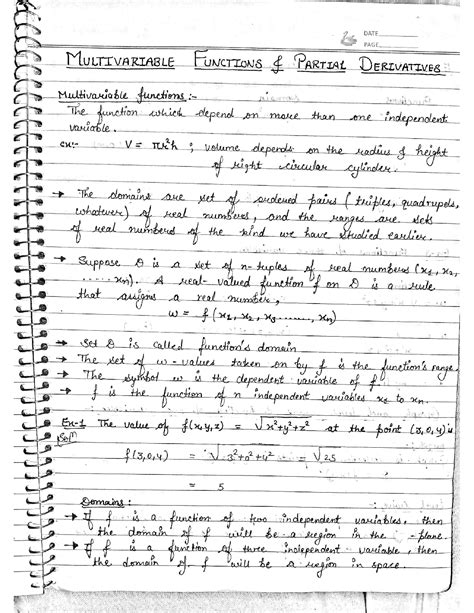 DATE
PAGE
MULTIVARIABLE FUNCTIONS & PARTIAL DERIVATIVES
Multivariable functions :-
The function which depend on more than one independent
variable.
ex:- V = πr²h ; volume depends on the radius & height
of right circular cylinder.
→ The domains are set of ordered pairs (triples, quadrupels,
whatever) of real numbers, and the ranges are sets
of real numbers of the kind we have studied earlier.
→ Suppose D is a set of n-tuples of real numbers (x₁, x₂,
..... xn). A real-valued function f on D is a rule
that assigns a real number,
w = f (x₁, x₂, x₃ ......., xn)
→ Set D is called function's domain
→ The set of w-values taken on by f is the function's range.
→ The symbol w is the dependent variable of f.
→ f is the function of n independent variables x₁ to xn.
Ex-1 The value of f(x,y,z) = √x²+y²+z² at the point (3,0,4) is
Solⁿ
f(3,0,4) = √3²+0²+4² = √25
= 5
Domains :
→ If f is a function of two independent variables, then
the domain of f will be a region in the -plane.
→ If f is a function of three independent variable, then
the domain of f will be a region in space.